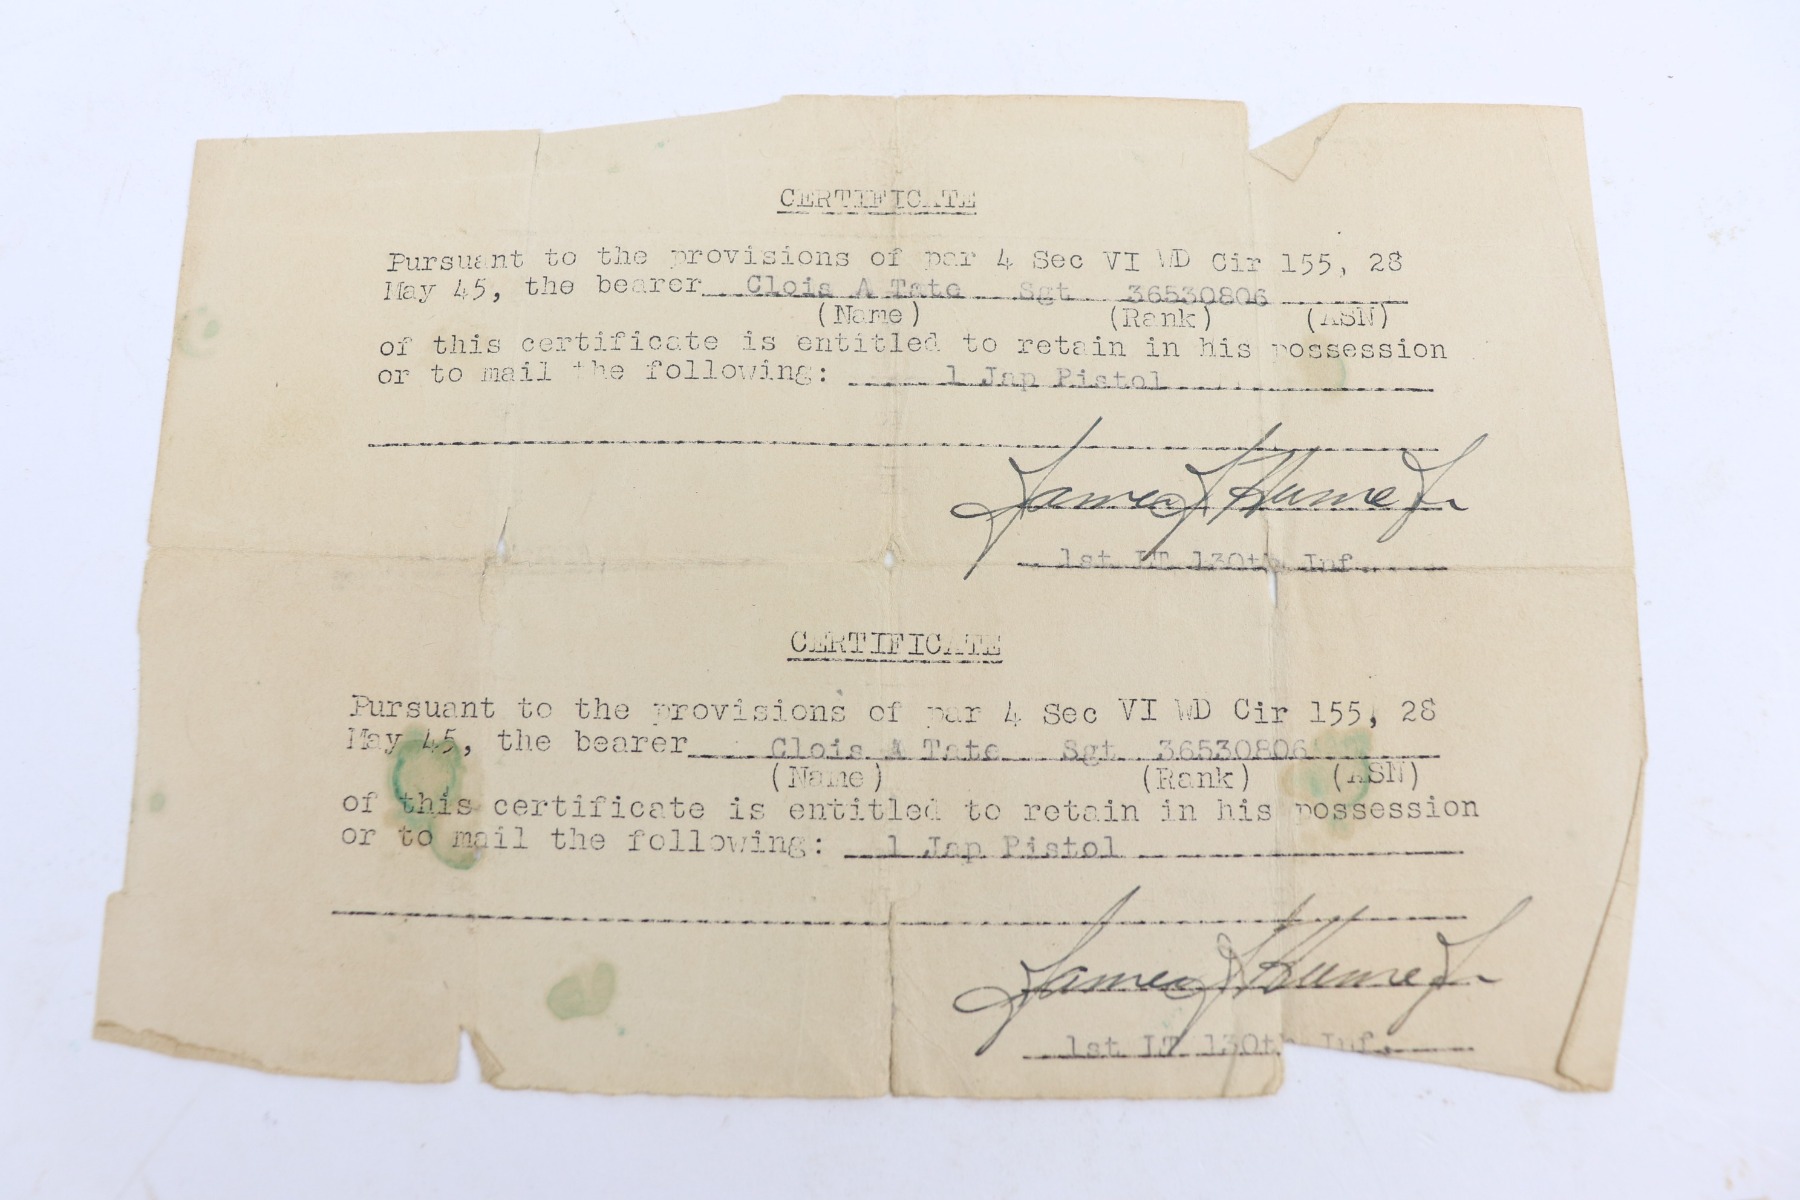 CERTIFICATE
Pursuant to the provisions of par 4 Sec VI WD Cir 155, 28
May 45, the bearer Clois A Tate Sgt 36530806
(Name) (Rank) (ASN)
of this certificate is entitled to retain in his possession
or to mail the following: 1 Jap Pistol
James J Hume Jr
1st LT 130th Inf.
CERTIFICATE
Pursuant to the provisions of par 4 Sec VI WD Cir 155, 28
May 45, the bearer Clois A Tate Sgt 36530806
(Name) (Rank) (ASN)
of this certificate is entitled to retain in his possession
or to mail the following: 1 Jap Pistol
James J Hume Jr
1st LT 130th Inf.